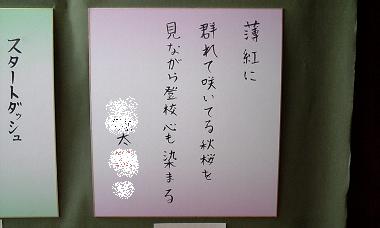 薄紅に
群れて咲いてる秋桜を
見ながら登校心も染まる
太
スタートダッシュ